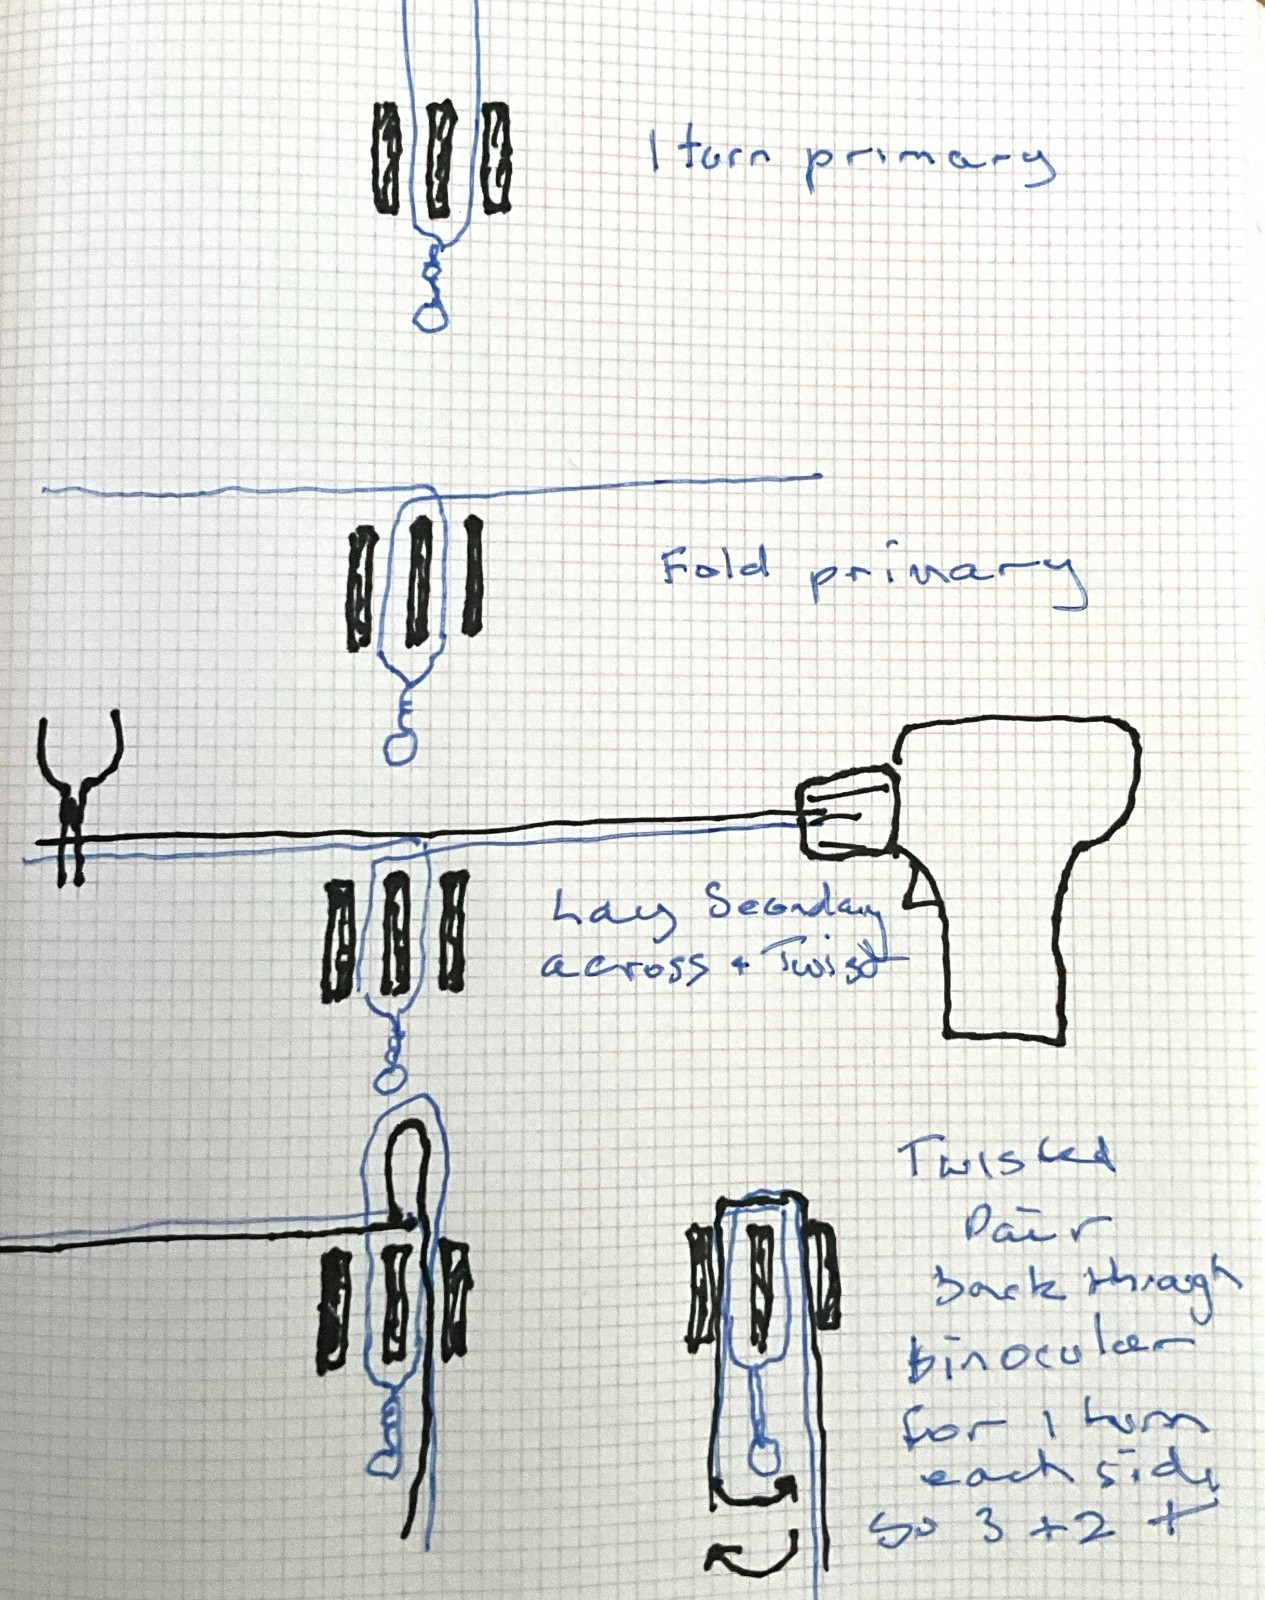 1 turn primary
Fold primary
Lay Secondary
across + Twist
Twisted
Pair
back through
binocular
for 1 turn
each side
so 3 + 2 t